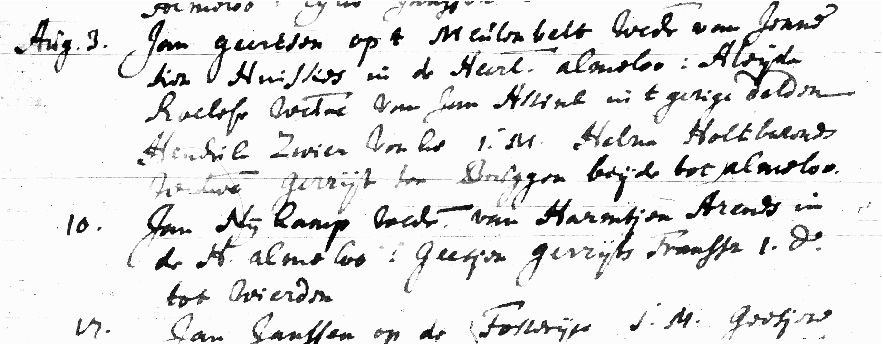 Aug. 3. Jan geertsen op t Meulenbelt Wedr van Jenne
ken Huiskes in de Heerl. almeloo : Aleijda
Roelofs Wedue van Jan Assink in t gerigt Delden
Hendrik Zwier Vonke j. M. Helena Holtbarends
Weduwe Gerrijt ten Bruggen beijde tot almeloo.
10. Jan Nij kamp Wedr. van Harmtjen Arends in
de H. almeloo : Geesjen gerrijts Franssn j. dr.
tot Wierden
17. Jan Janssen op de j. M. Geesjen